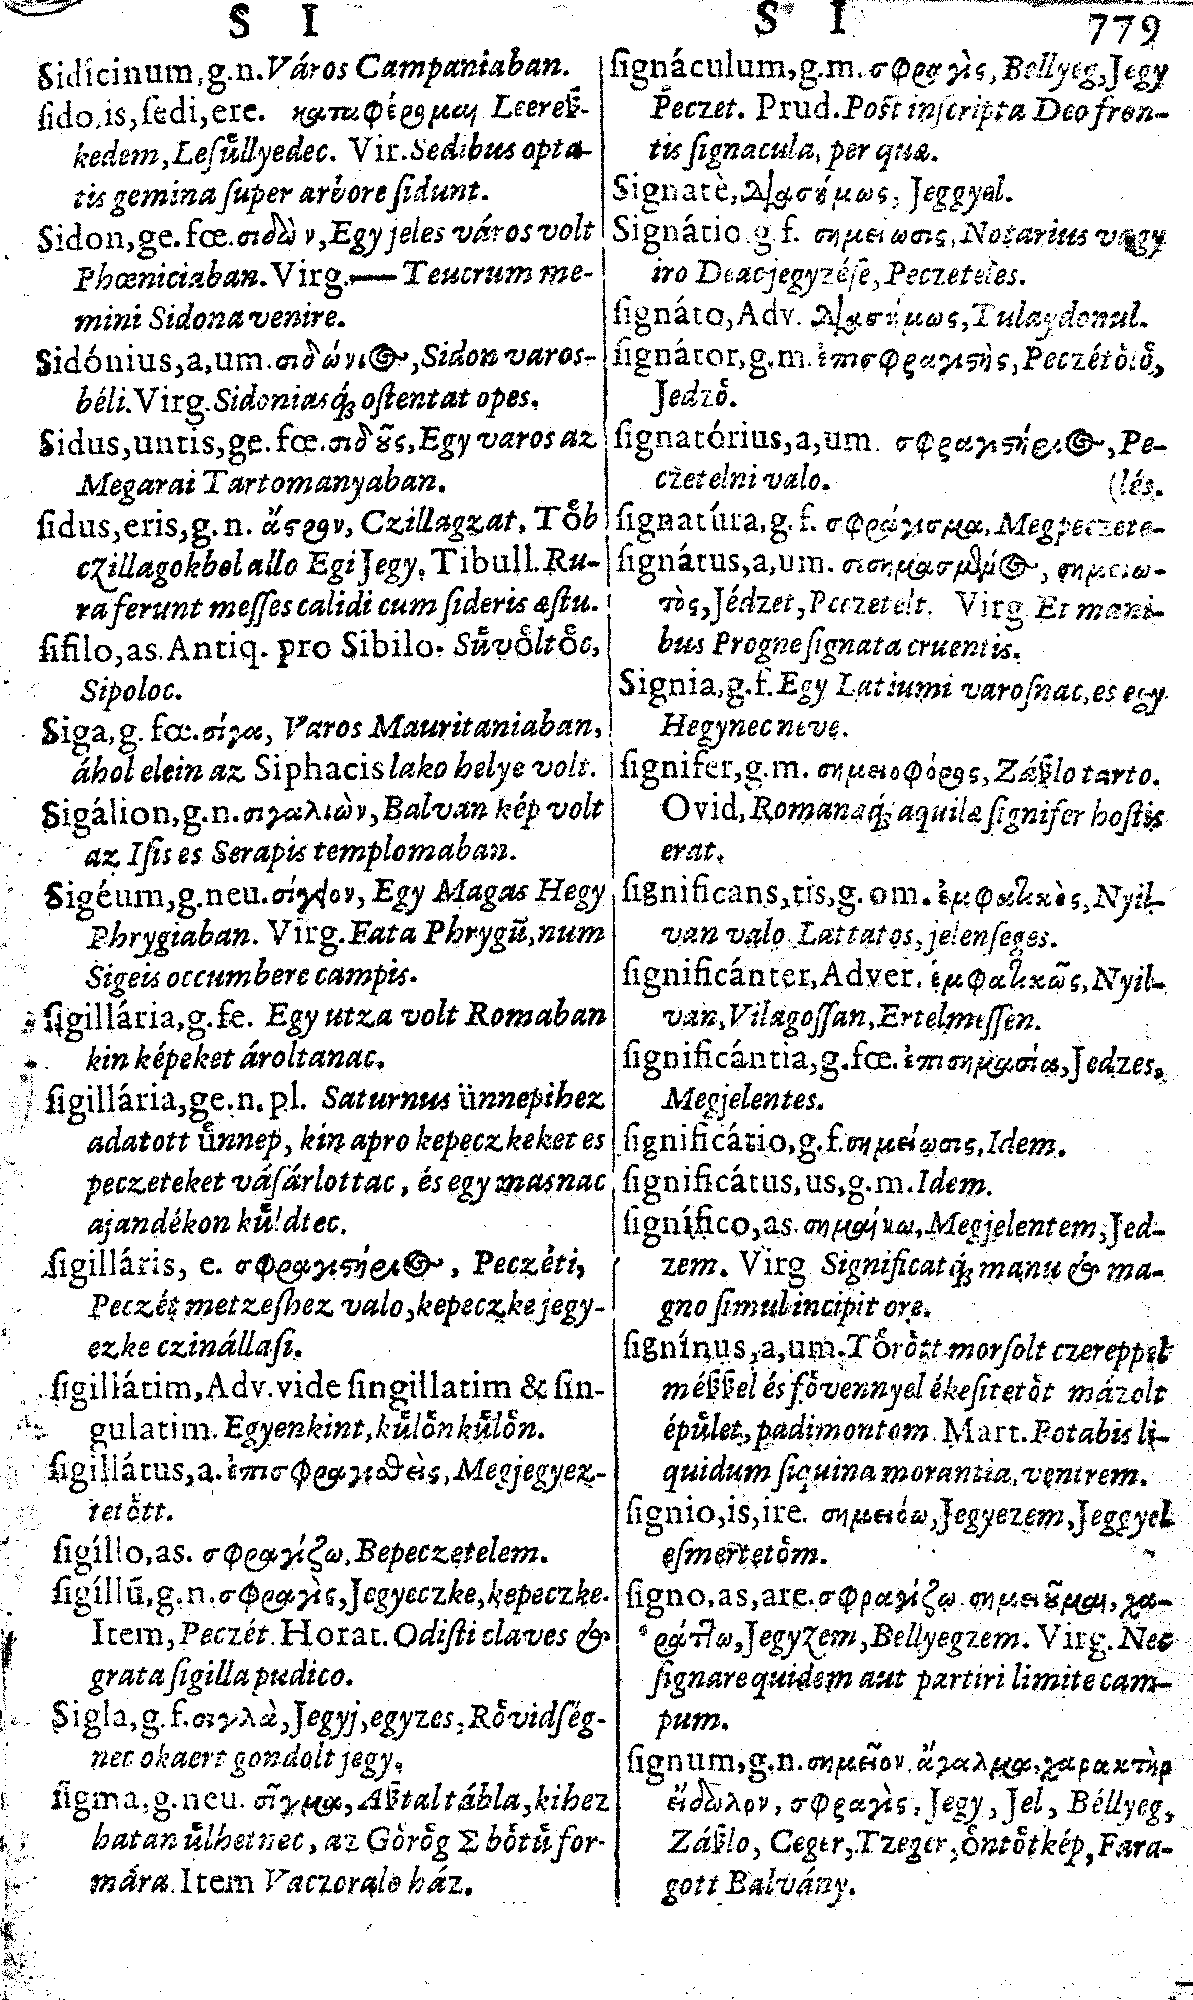 S I
Sidícinum, g.n. Város Campaniaban.
ſido, is, ſedi, ere. καταφέρομαι Leereſz-
kedem, Leſuͤllyedec. Vir. Sedibus opta-
tis gemina ſuper arbore ſidunt.
Sidon, ge. fœ. σιδὼν, Egy jeles város volt
Phœniciaban. Virg. — Teucrum me-
mini Sidona venire.
Sidónius, a, um. σιδώνιος, Sidon varos-
béli. Virg. Sidoniasq́; oſtentat opes.
Sidus, untis, ge. fœ. σιδοῦς, Egy varos az
Megarai Tartomanyaban.
ſidus, eris, g.n. ἄστρον, Czillagzat, Toͤb
czillagokbol allo Egi Jegy. Tibull. Ru-
ra ferunt meſſes calidi cum ſideris æſtu.
ſifilo, as. Antiq. pro Sibilo. Suͤvoͤltoͤc,
Sipoloc.
Siga, g. fœ. σίγα, Varos Mauritaniaban,
áhol elein az Siphacis lako helye volt.
Sigálion, g.n. σιγαλιὼν, Balvan kép volt
az Iſis es Serapis templomaban.
Sigéum, g. neu. σίγειον, Egy Magas Hegy
Phrygiaban. Virg. Fata Phrygũ, num
Sigeis occumbere campis.
ſigillária, g. fe. Egy utza volt Romaban
kin képeketároltanac.
ſigillária, ge. n. pl. Saturnus ünnepihez
adatott uͤnnep, kin apro kepeczkeket es
peczeteket váſárlottac, és egy masnac
ajandékon kuͤldtec.
ſigilláris, e. σφραγιστήριος, Peczéti,
Peczét metzeſhez valo, kepeczke jegy-
ezke czinállaſi.
ſigillátim, Adv. vide ſingillatim & ſin-
gulatim. Egyenkint, kuͤloͤn kuͤloͤn.
ſigillátus, a. ἐπισφραγισθεὶς, Megjegyez-
tetoͤtt.
ſigíllo, as. σφραγίζω, Bepeczetelem.
ſigíllũ, g.n. σφραγὶς, Jegyeczke, kepeczke.
Item, Peczét. Horat. Odiſti claves &
grata ſigilla pudico.
Sigla, g. f. σιγλὰ, Jegyj, egyzes, Roͤvidſég-
nec okaert gondolt jegy.
ſigma, g. neu. σῖγμα, Aſztal tábla, kihez
hatan uͤlhetnec, az Goͤroͤg Σ boͤtuͤ for-
mára. Item Vaczoralo ház.
S I 779
ſignáculum, g.m. σφραγὶς, Bellyeg, Jegy
Peczet. Prud. Poſt inſcripta Deo fron-
tis ſignacula, per quæ.
Signatè, διασήμως, Jeggyel.
Signátio. g. f. σημείωσις, Notarius vagy
iro Deac jegyzéſe, Peczeteles.
ſignáto, Adv. διασήμως, Tulaydonul.
ſignátor, g.m. ἐπισφραγιστὴς, Peczétoͤloͤ,
Jedzoͤ.
ſignatórius, a, um. σφραγιστήριος, Pe-
czetelni valo.
ſignatúra, g. f. σφράγισμα, Megpeczete-
(lés.
ſignátus, a, um. σεσημασμένος, σημειω-
τὸς, Jédzet, Peczetelt. Virg. Et mani-
bus Progne ſignata cruentis.
Signia, g. f. Egy Latiumi varoſnac, es egy
Hegynec neve.
ſignifer, g.m. σημειοφόρος, Záſzlo tarto.
Ovid, Romanaq́; aquilæ ſignifer hoſtis
erat.
ſignificans, tis, g. om. ἐμφατικὸς, Nyil-
van valo. Lattatos, jelenſeges.
ſignificánter, Adver. ἐμφατικῶς, Nyil-
van, Vilagoſſan, Ertelmeſſen.
ſignificántia, g. fœ. ἐπισημασία, Jedzes,
Megjelentes.
ſignificátio, g. f. σημείωσις, Idem.
ſignificátus, us, g.m. Idem.
ſignífico, as. σημαίνω, Megjelentem, Jed-
zem. Virg Significatq́; manu & ma-
gno ſimul incipit ore.
ſignínus, a, um. Toͤroͤtt morſolt czereppel
méſzſzel és foͤvennyel ékeſitetoͤt mázolt
épuͤlet, padimontom. Mart. Potabis li-
quidum ſiquina morantia ventrem.
ſignio, is, ire. σημειόω, Jegyezem, Jeggyel
eſmertetoͤm.
ſigno, as, are. σφραγίζω. σημειοῦμαι, χα-
ράττω, Jegyzem, Bellyegzem. Virg. Nec
ſignare quidem aut partiri limite cam-
pum.
ſignum, g.n. σημεῖον. ἄγαλμα, χαρακτὴρ
εἴδωλον, σφραγὶς, Jegy, Jel, Béllyeg,
Záſzlo, Ceger, Tzeger, oͤntoͤtkép, Fara-
gott Balvány.